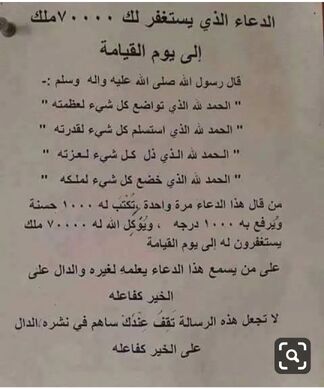 الدعاء الذي يستغفر لك ٧٠٠٠٠ملك
إلى يوم القيامة
قال رسول الله صلى الله عليه واله وسلم :-
" الحمد لله الذي تواضع كل شيء لعظمته "
" الحمد لله الذي استسلم كل شيء لقدرته "
" الحمد لله الذي ذل كل شيء لعزته "
" الحمد لله الذي خضع كل شيء لملكه "
من قال هذا الدعاء مرة واحدة ,يُكتَب له ١٠٠٠ حسنة
ويُرفع به ١٠٠٠ درجه , ويُؤكل الله له ٧٠٠٠٠ ملك
يستغفرون له إلى يوم القيامة
على من يسمع هذا الدعاء يعلمه لغيره والدال على
الخير كفاعله
لا تجعل هذه الرسالة تَقفُ عِندَكَ ساهم في نشره/الدال
على الخير كفاعله